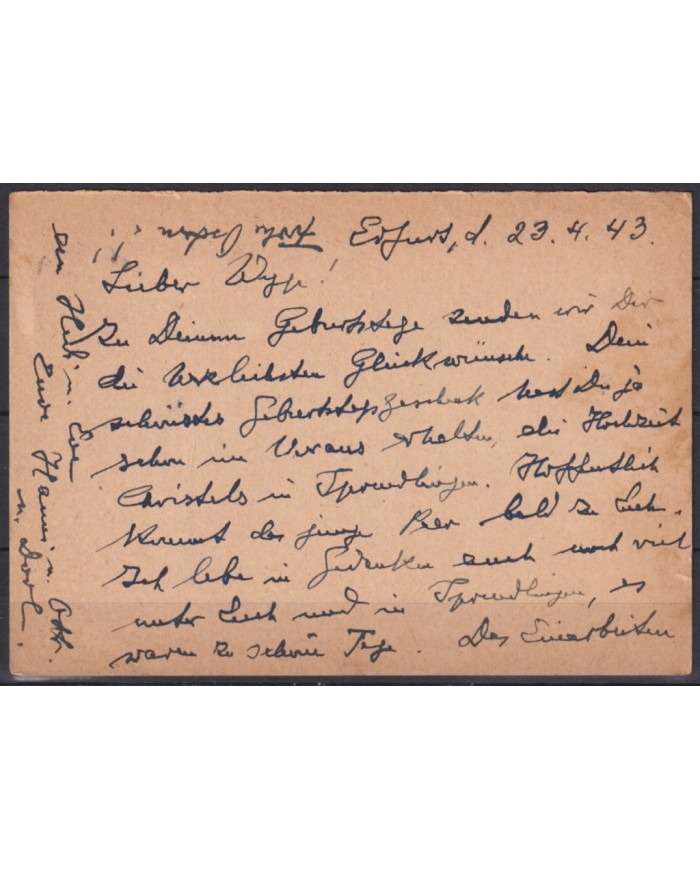 Erfurt, d. 23.4.43.
Lieber
Zu Deinem Geburtstage senden wir Dir
die herzliebsten Glückwünsche. Dein
schönstes Geburtstagsgeschenk hast Du ja
schon im Voraus erhalten, die Hochzeit
Christels in Sprendlingen. Hoffentlich
kommt das junge Paar bald zu Euch.
Ich lebe in Gedanken auch noch viel
unter Euch und in Sprendlingen, es
waren zu schöne Tage. Das Einarbeiten
an u.
Eure Hanni u.
u.